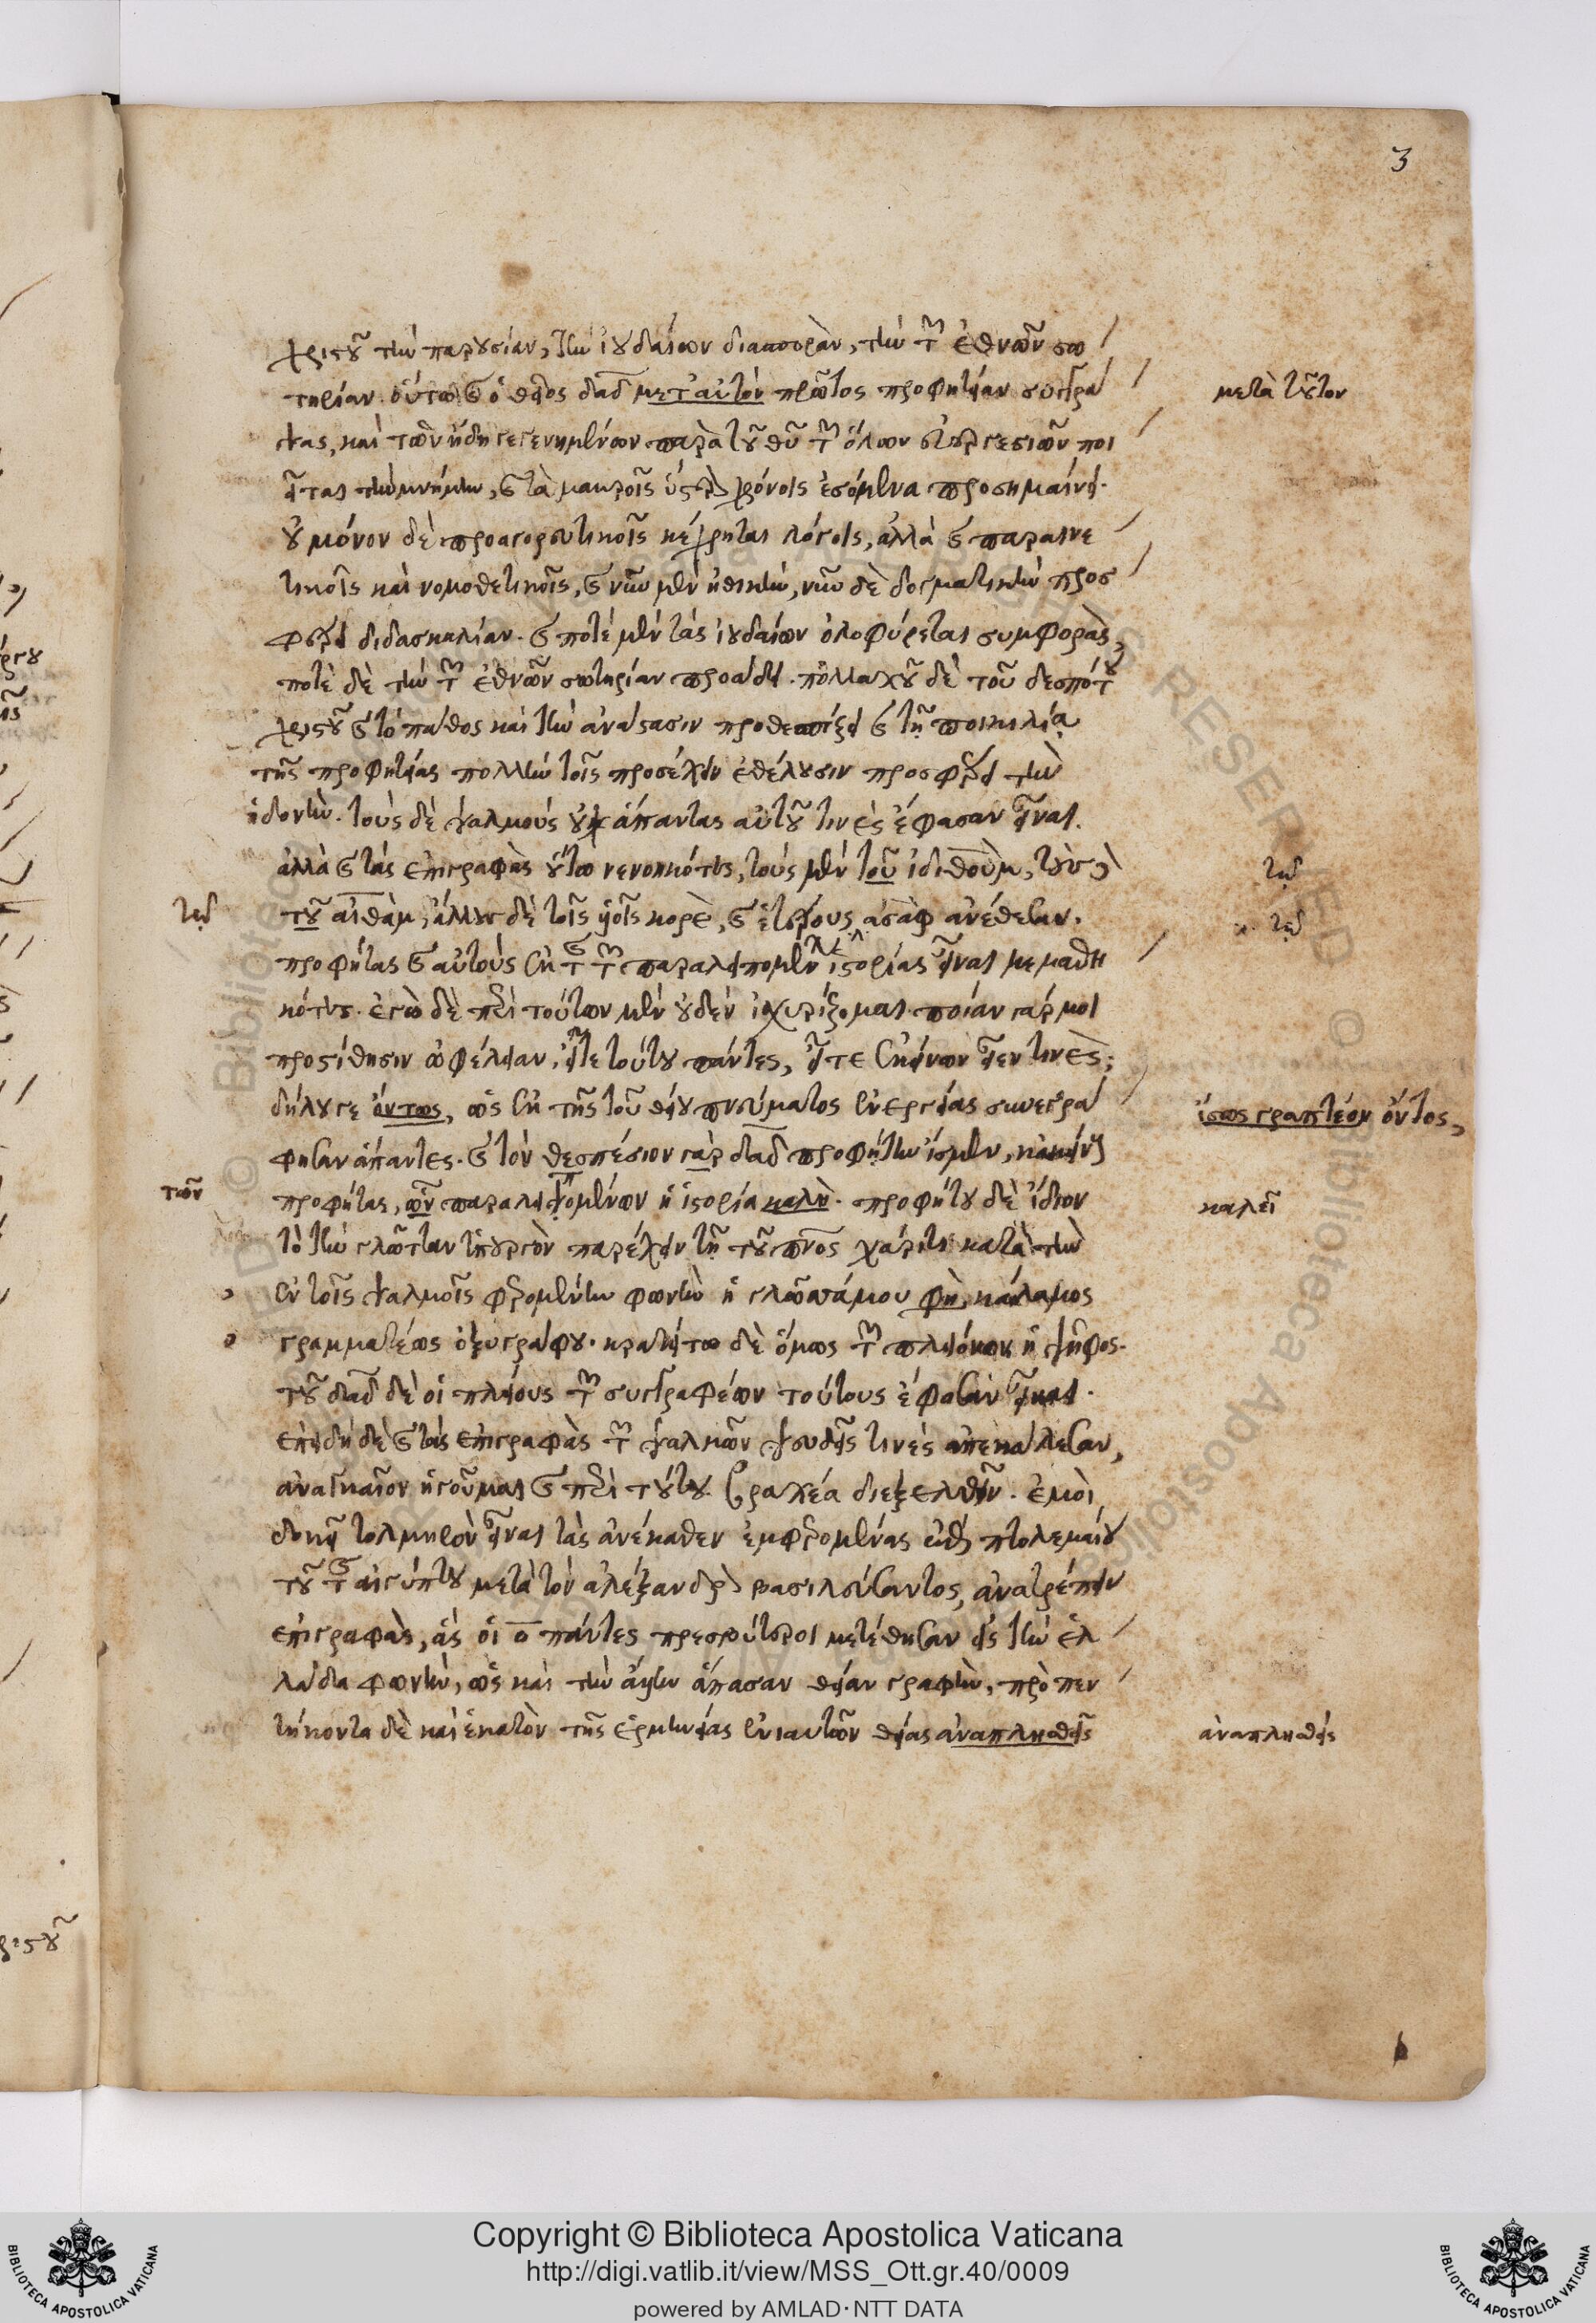 3
χριστοῦ τὴν παρουσίαν, τὴν ἰουδαίων διασπορὰν, τὴν τῶν ἐθνῶν σω
τηρίαν. οὕτω καὶ ὁ θεῖος δαδ μετ' αὐτὸν πρῶτος προφητείαν συγγρά
μετὰ τοῦτον
ψας, καὶ τῶν ἤδη γεγενημένων παρὰ τοῦ θυ τῶν ὅλων εὐεργεσιῶν ποι
εῖται τὴν μνήμην, καὶ τὰ μακροῖς ὕστερον χρόνοις ἐσόμενα προσημαίνει.
οὐ μόνον δὲ προαγορευτικοῖς κέχρηται λόγοις, ἀλλὰ καὶ παραινε
τικοῖς καὶ νομοθετικοῖς, καὶ νῦν μὲν ἠθικὴν, νῦν δὲ δογματικὴν προσ
φέρει διδασκαλίαν. καὶ ποτὲ μὲν τὰς ἰουδαίων ὀλοφύρεται συμφορὰς,
ποτὲ δὲ τὴν τῶν ἐθνῶν σωτηρίαν προαίδει. πολλαχοῦ δὲ τοῦ δεσπότου
χριστοῦ καὶ τὸ πάθος καὶ τὴν ἀνάστασιν προθεσπίζει καὶ τῇ ποικιλίᾳ
τῆς προφητείας πολλὴν τοῖς προσέχειν ἐθέλουσιν προσφέρει τὴν
ἡδονὴν. τοὺς δὲ ψαλμοὺς οὐχ ἅπαντας αὐτοῦ τινὲς ἔφασαν εἶναι.
ἀλλὰ καὶ τὰς ἐπιγραφὰς οὕτω νενοηκότες, τοὺς μὲν τοῦ ἰδιθοὺμ, τοὺς δὲ
τῷ
τῷ
τοῦ αἰθὰμ, ἄλλους δὲ τοῖς υἱοῖς κορὲ, καὶ ἑτέρους ἀσὰφ ἀνέθεσαν.
τῷ
προφήτας καὶ αὐτοὺς ἐκ τῆς τῶν παραλειπομένων ἱστορίας εἶναι μεμαθη
κότες. ἐγὼ δὲ περὶ τούτων μὲν οὐδὲν ἰσχυρίζομαι. ποίαν γάρ μοι
προστίθησιν ὠφέλειαν, εἴτε τούτου πάντες, εἴτε ἐκείνων εἶεν τινὲς;
δήλου γε ὄντως, ὡς ἐκ τῆς τοῦ θείου πνεύματος ἐνεργείας συνεγρά
ἴσως γραπτέον ὄντος,
φησαν ἅπαντες. καὶ τὸν θεσπέσιον γὰρ δαδ προφήτην ἴσμεν, κἀκείνους
προφήτας, ὧν παραλειπομένων ἡ ἱστορία καλὴ. προφήτου δὲ ἴδιον
τῶν
καλεῖ
τὸ τὴν γλῶτταν ὑπουργὸν παρέχειν τῇ τοῦ πνος χάριτι κατὰ τὴν
ἐν τοῖς ψαλμοῖς φερομένην φωνὴν ἡ γλῶσσά μου φὴ, κάλαμος
γραμματέως ὀξυγράφου. κρατείτω δὲ ὅμως τῶν πλειόνων ἡ ψῆφος.
τοῦ δαδ δὲ οἱ πλείους τῶν συγγραφέων τούτους ἔφασαν εἶναι.
ἐπειδὴ δὲ καὶ τὰς ἐπιγραφὰς τῶν ψαλμῶν ψευδεῖς τινὲς ἀπεκάλεσαν,
ἀναγκαῖον ἡγοῦμαι καὶ περὶ τούτου βραχέα διεξελθεῖν. ἐμοὶ
δοκεῖ τολμηρὸν εἶναι τὰς ἀνέκαθεν ἐμφερομένας ἐπὶ πτολεμαίου
τοῦ τῆς αἰγύπτου μετὰ τὸν ἀλέξανδρον βασιλεύσαντος, ἀνατρέπειν
ἐπιγραφὰς, ἃς οἱ ο πάντες πρεσβύτεροι μετέθησαν εἰς τὴν ἑλ
λάδα φωνὴν, ὡς καὶ τὴν ἄλλην ἅπασαν θείαν γραφὴν, πρὸ πεν
τήκοντα δὲ καὶ ἑκατὸν τῆς ἑρμηνείας ἐνιαυτῶν θείας ἀναπλησθεῖς
ἀναπλησθεὶς
Copyright © Biblioteca Apostolica Vaticana
http://digi.vatlib.it/view/MSS_Ott.gr.40/0009
powered by AMLAD·NTT DATA